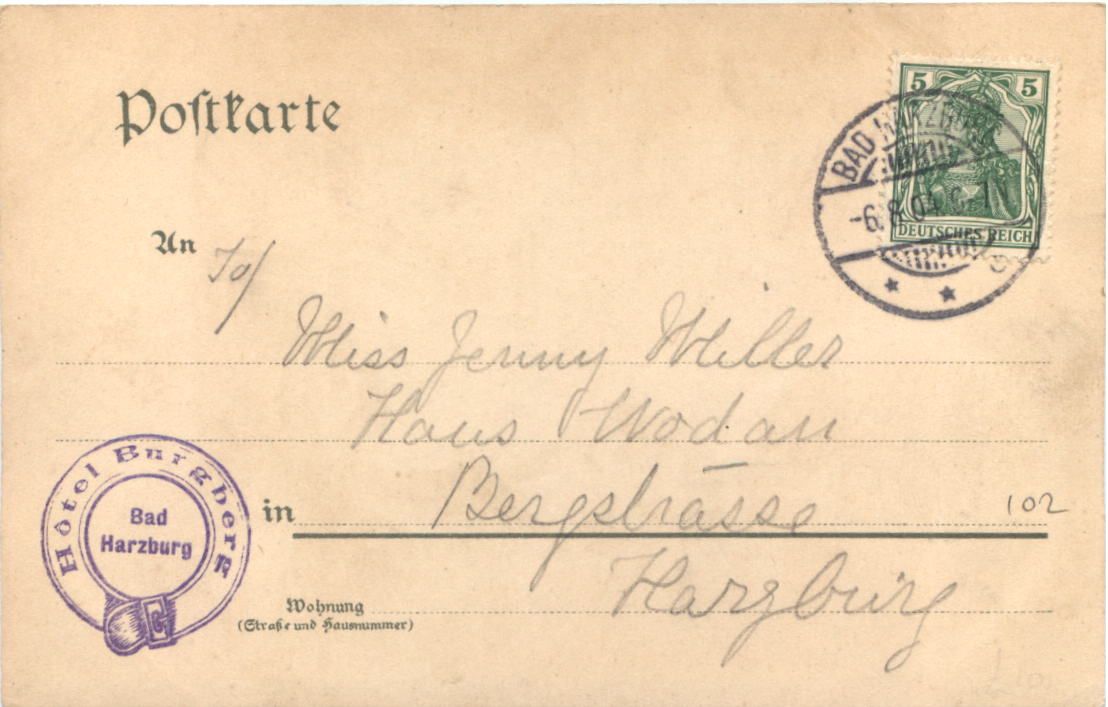 Postkarte
5 5
DEUTSCHES REICH
BAD HARZBURG
-6.8.04.
An
To/
Miss Jenny Miller
Haus Wodan
in Bergstrasse
102
Harzburg
Hôtel Burgberg
Bad
Harzburg
Wohnung
(Straße und Hausnummer)